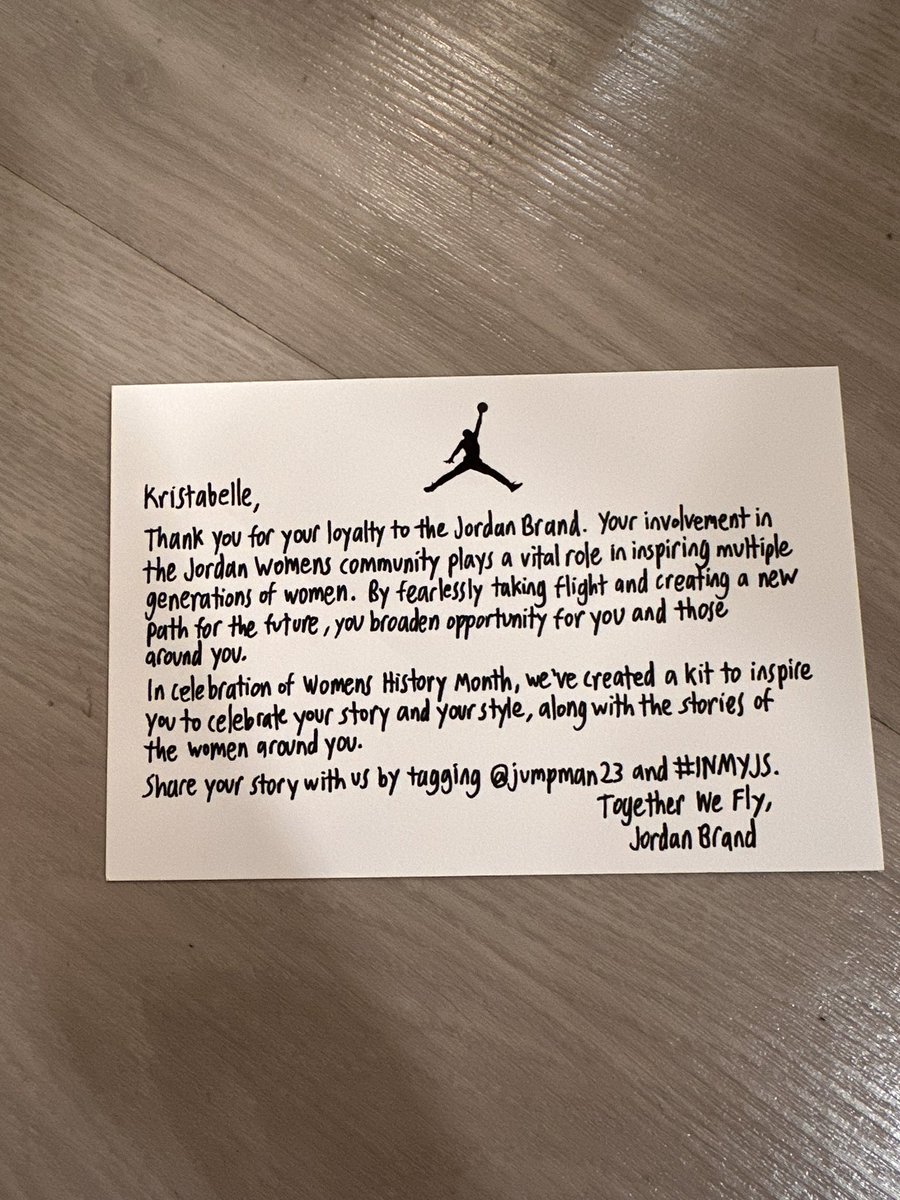 Kristabelle,
Thank you for your loyalty to the Jordan Brand. Your involvement in
the Jordan Womens community plays a vital role in inspiring multiple
generations of women. By fearlessly taking flight and creating a new
path for the future, you broaden opportunity for you and those
around you.
In celebration of Womens History Month, we've created a kit to inspire
you to celebrate your story and your style, along with the stories of
the women around you.
Share your story with us by tagging @jumpman23 and #INMYJS.
Together We Fly,
Jordan Brand